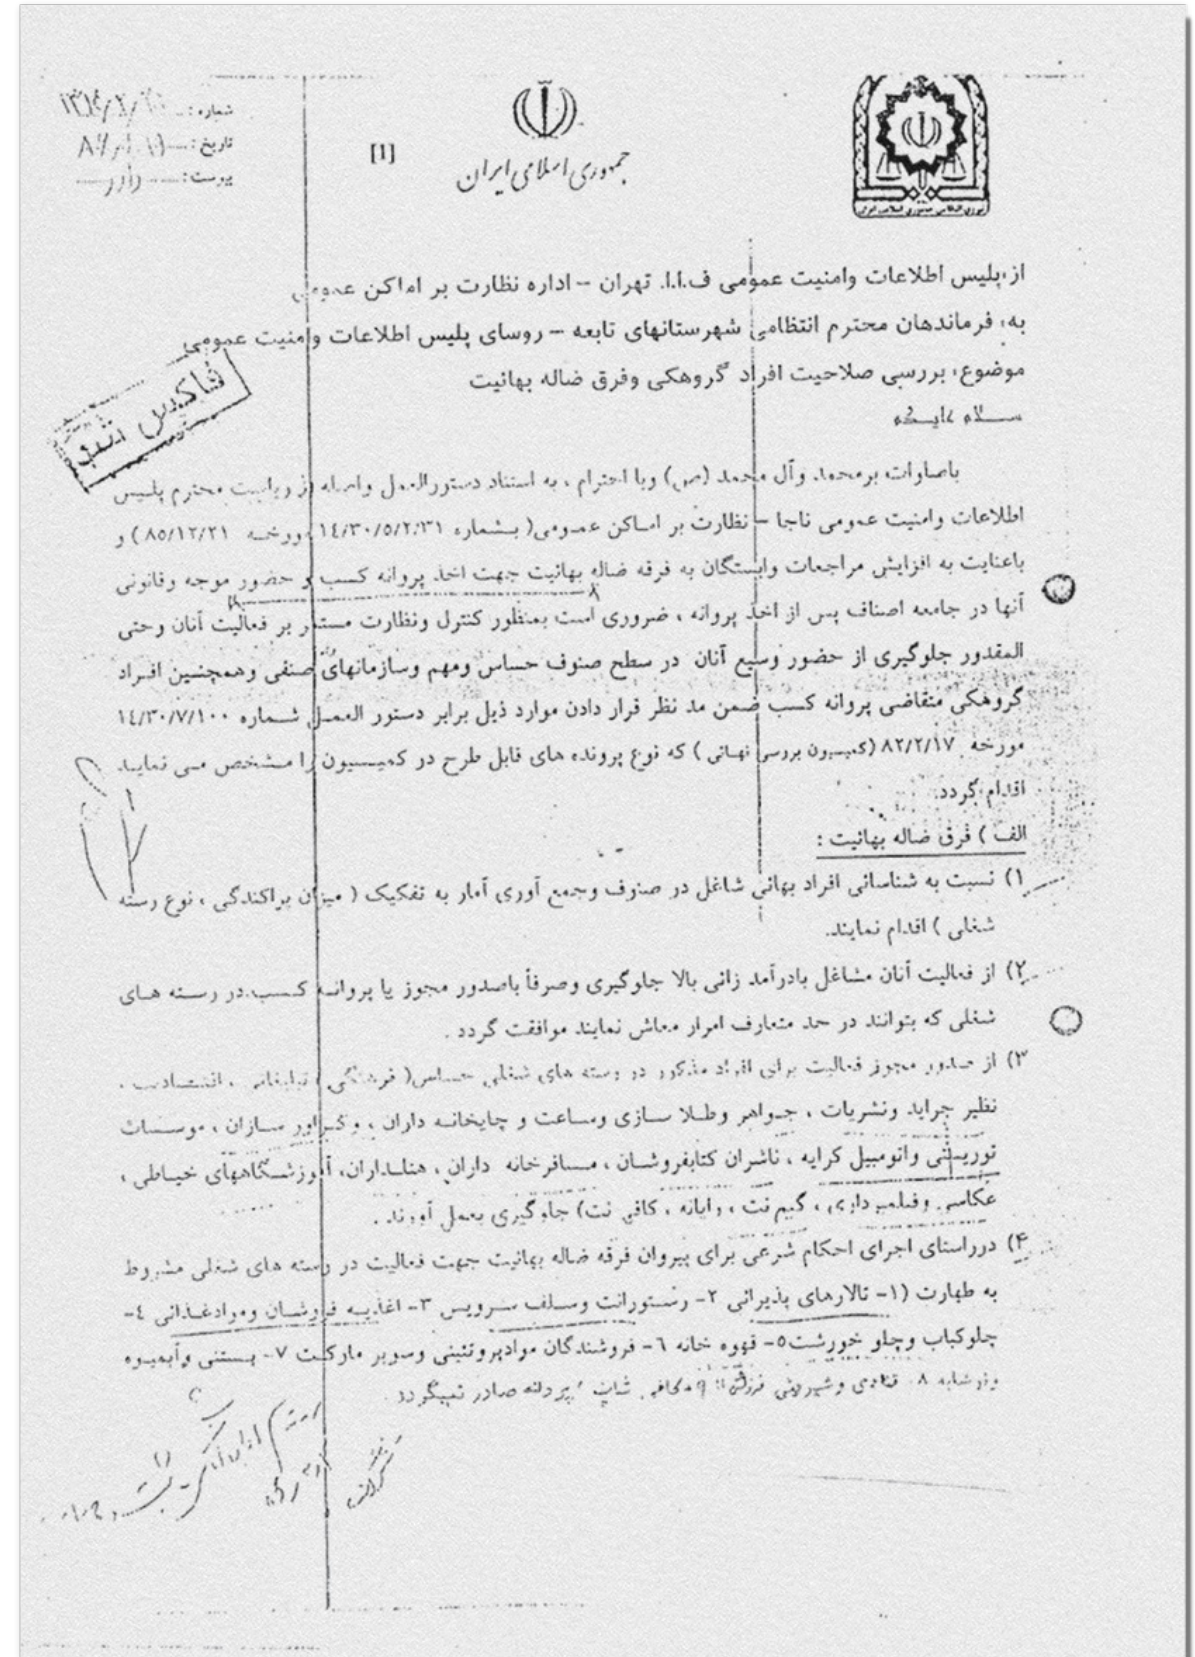 شماره:
تاریخ:
پیوست: دارد
[1]
جمهوری اسلامی ایران
نیروی انتظامی جمهوری اسلامی ایران
از: پلیس اطلاعات وامنیت عمومی ف.ا.ا. تهران – اداره نظارت بر اماکن عمومی
به: فرماندهان محترم انتظامی شهرستانهای تابعه – روسای پلیس اطلاعات وامنیت عمومی
موضوع: بررسی صلاحیت افراد گروهکی وفرق ضاله بهائیت
فاکس شد
سلام علیکم
باصلوات برمحمد وآل محمد (ص) وبا احترام ، به استناد دستورالعمل واصله از ریاست محترم پلیس
اطلاعات وامنیت عمومی ناجا – نظارت بر اماکن عمومی( بشماره ۱۴/۳۰/۵/۲/۳۱ مورخه ۸۵/۱۲/۲۱ ) و
باعنایت به افزایش مراجعات وابستگان به فرقه ضاله بهائیت جهت اخذ پروانه کسب و حضور موجه وقانونی
آنها در جامعه اصناف پس از اخذ پروانه ، ضروری است بمنظور کنترل ونظارت مستمر بر فعالیت آنان وحتی
المقدور جلوگیری از حضور وسیع آنان در سطح صنوف حساس ومهم وسازمانهای صنفی وهمچنین افراد
گروهکی متقاضی پروانه کسب ضمن مد نظر قرار دادن موارد ذیل برابر دستور العمل شماره ۱۴/۳۰/۷/۱۰۰
مورخه ۸۲/۲/۱۷ (کمیسیون بررسی نهائی ) که نوع پرونده های قابل طرح در کمیسیون را مشخص می نماید
اقدام گردد.
الف ) فرق ضاله بهائیت :
۱) نسبت به شناسائی افراد بهائی شاغل در صنوف وجمع آوری آمار به تفکیک ( میزان پراکندگی ، نوع رسته
شغلی ) اقدام نمایند.
۲) از فعالیت آنان مشاغل بادرآمد زائی بالا جلوگیری وصرفاً باصدور مجوز یا پروانه کسب در رسته های
شغلی که بتوانند در حد متعارف امرار معاش نمایند موافقت گردد .
۳) از صدور مجوز فعالیت برای افراد مذکور در رسته های شغلی حساس( فرهنگی ، تبلیغاتی ، اقتصادی ،
نظیر جراید ونشریات ، جواهر وطلا سازی وساعت و چاپخانه داران ، وگراور سازان ، موسسات
توریستی واتومبیل کرایه ، ناشران کتابفروشان ، مسافرخانه داران ، هتلداران، آموزشگاههای خیاطی ،
عکاسی وفیلمبرداری ، گیم نت ، رایانه ، کافی نت) جلوگیری بعمل آورند .
۴) درراستای اجرای احکام شرعی برای پیروان فرقه ضاله بهائیت جهت فعالیت در رسته های شغلی مشروط
به طهارت (۱- تالارهای پذیرائی ۲- رستورانت وسلف سرویس ۳- اغذیه فروشان وموادغذائی ۴-
چلوکباب وچلو خورشت۵- قهوه خانه ۶- فروشندگان موادپروتئینی وسوپر مارکت ۷- بستنی وآبمیوه
ونوشابه ۸- قنادی و شیرینی فروشی ۹- کافی شاپ) پروانه صادر نمیگردد .